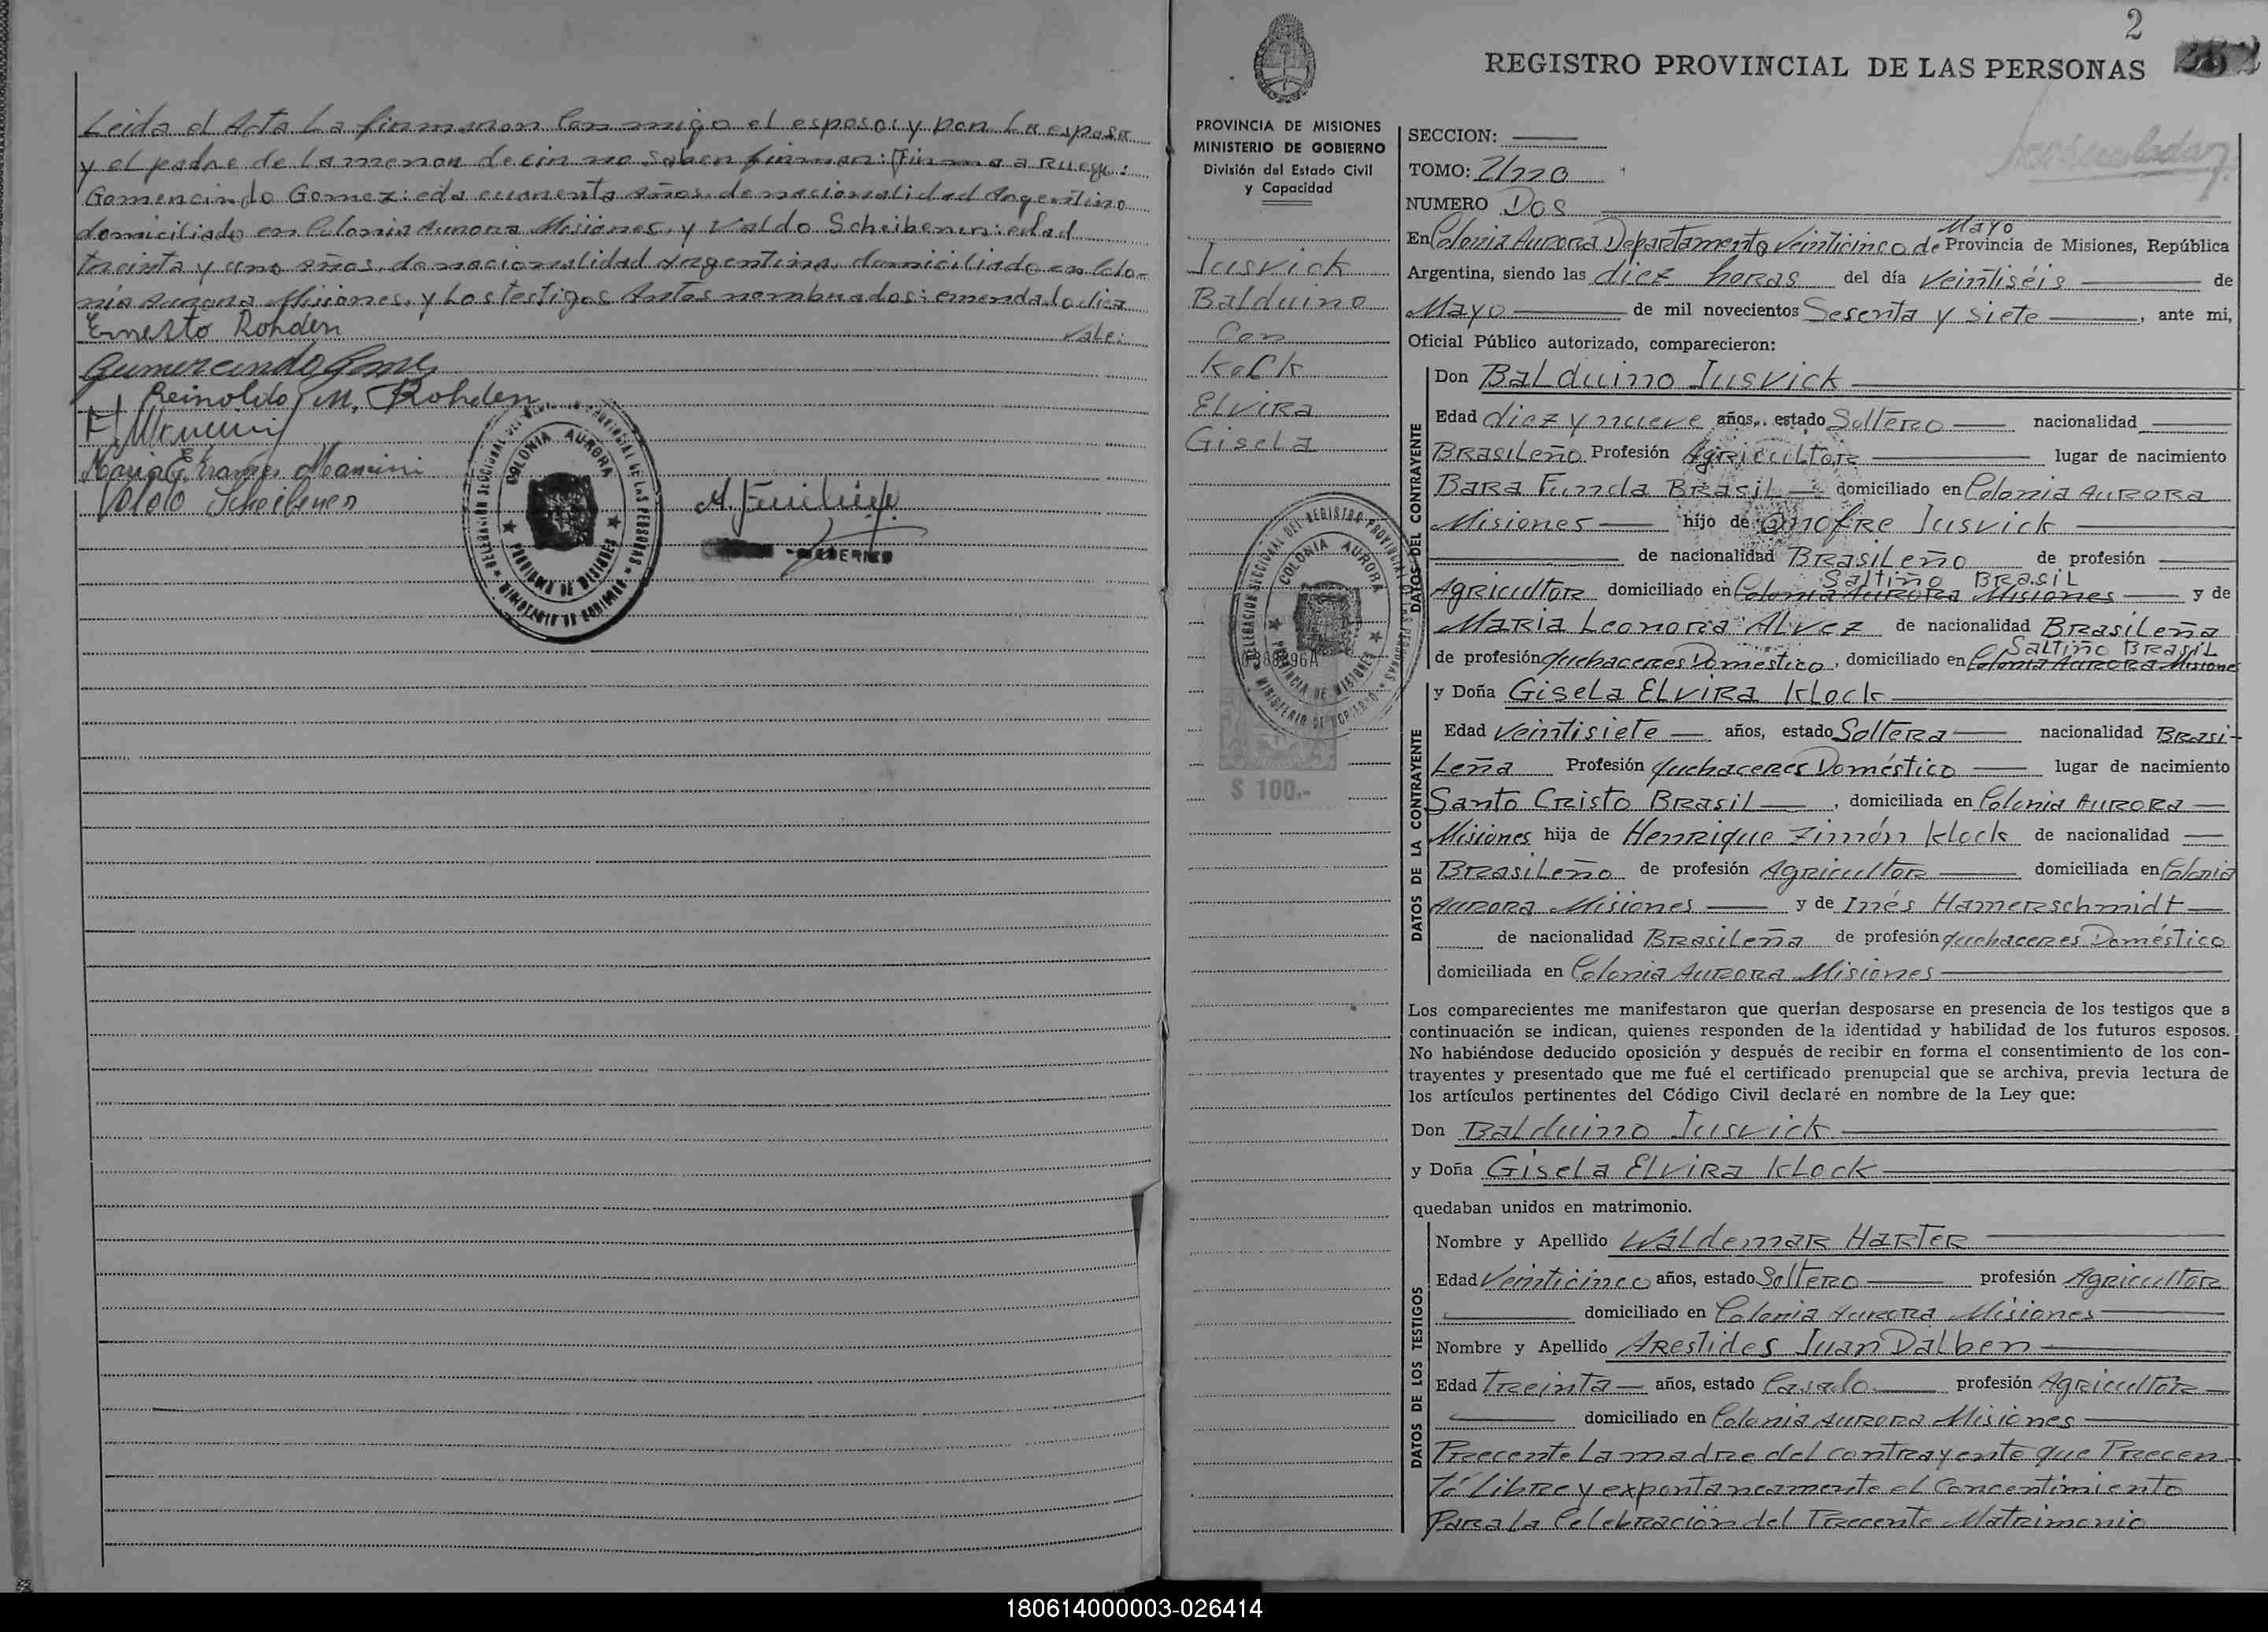 Leida el Acta La firmaron conmigo el esposo: y por La esposa
y el padre de La menor decir no saben firmar: Firma a Ruego:
Gomencindo Gomez: eda cuarenta años de nacionalidad Argentino
domiciliado en Colonia Aurora Misiones, y Valdo Scheibenen: edad
treinta y uno años, de nacionalidad Argentina, domiciliado en Colo-
nia Aurora Misiones, y Los testigos Antes nombrados: enmendado diez
Vale:
Ernesto Rohden
Gumercindo Gomez
Reinoldo M. Rohden
Mancini
Maria E. Mancini
Valdo Scheibener
DELEGACION SECCIONAL DEL REGISTRO PROVINCIAL DE LAS PERSONAS
COLONIA AURORA
PROVINCIA DE MISIONES
MINISTERIO DE GOBIERNO
2
REGISTRO PROVINCIAL DE LAS PERSONAS
PROVINCIA DE MISIONES
MINISTERIO DE GOBIERNO
División del Estado Civil
y Capacidad
Jusvick
Balduino
Con
Kolk
Elvira
Gisela
DELEGACION SECCIONAL DEL REGISTRO PROVINCIAL DE LAS PERSONAS
COLONIA AURORA
PROVINCIA DE MISIONES
MINISTERIO DE GOBIERNO
$ 100.-
SECCION:
TOMO: Uno
NUMERO Dos
En Colonia Aurora Departamento Veinticinco de Mayo Provincia de Misiones, República
Argentina, siendo las diez horas del día Veintiséis de
Mayo de mil novecientos Sesenta y Siete, ante mi,
Oficial Público autorizado, comparecieron:
DATOS DEL CONTRAYENTE
Don Balduino Jusvick
Edad diez y nueve años, estado Soltero nacionalidad
Brasileño Profesión Agricultor lugar de nacimiento
Bara Funda Brasil domiciliado en Colonia Aurora
Misiones hijo de Onofre Jusvick
de nacionalidad Brasileño de profesión
Saltiño Brasil
Agricultor domiciliado en Colonia Aurora Misiones y de
Maria Leonora Alvez de nacionalidad Brasileña
Saltiño Brasil
de profesión quehaceres Doméstico, domiciliado en Colonia Aurora Misione
DATOS DE LA CONTRAYENTE
y Doña Gisela Elvira Klock
Edad Veintisiete años, estado Soltera nacionalidad Brasi-
Leña Profesión quehaceres Doméstico lugar de nacimiento
Santo Cristo Brasil, domiciliada en Colonia Aurora
Misiones hija de Henrique Zimón Klock de nacionalidad
Brasileño de profesión Agricultor domiciliada en Colonia
Aurora Misiones y de Inés Hamerschmidt
de nacionalidad Brasileña de profesión quehaceres Doméstico
domiciliada en Colonia Aurora Misiones
Los comparecientes me manifestaron que querían desposarse en presencia de los testigos que a
continuación se indican, quienes responden de la identidad y habilidad de los futuros esposos.
No habiéndose deducido oposición y después de recibir en forma el consentimiento de los con-
trayentes y presentado que me fué el certificado prenupcial que se archiva, previa lectura de
los artículos pertinentes del Código Civil declaré en nombre de la Ley que:
Don Balduino Jusvick
y Doña Gisela Elvira Klock
quedaban unidos en matrimonio.
DATOS DE LOS TESTIGOS
Nombre y Apellido Waldemar Harter
Edad Veinticinco años, estado Soltero profesión Agricultor
domiciliado en Colonia Aurora Misiones
Nombre y Apellido Arestides Juan Dalben
Edad Treinta años, estado Casado profesión Agricultor
domiciliado en Colonia Aurora Misiones
Precente La madre del contrayente que Precen-
tó Libre y expontaneamente el Concentimiento
Para la Celebración del Precente Matrimonio
180614000003-026414